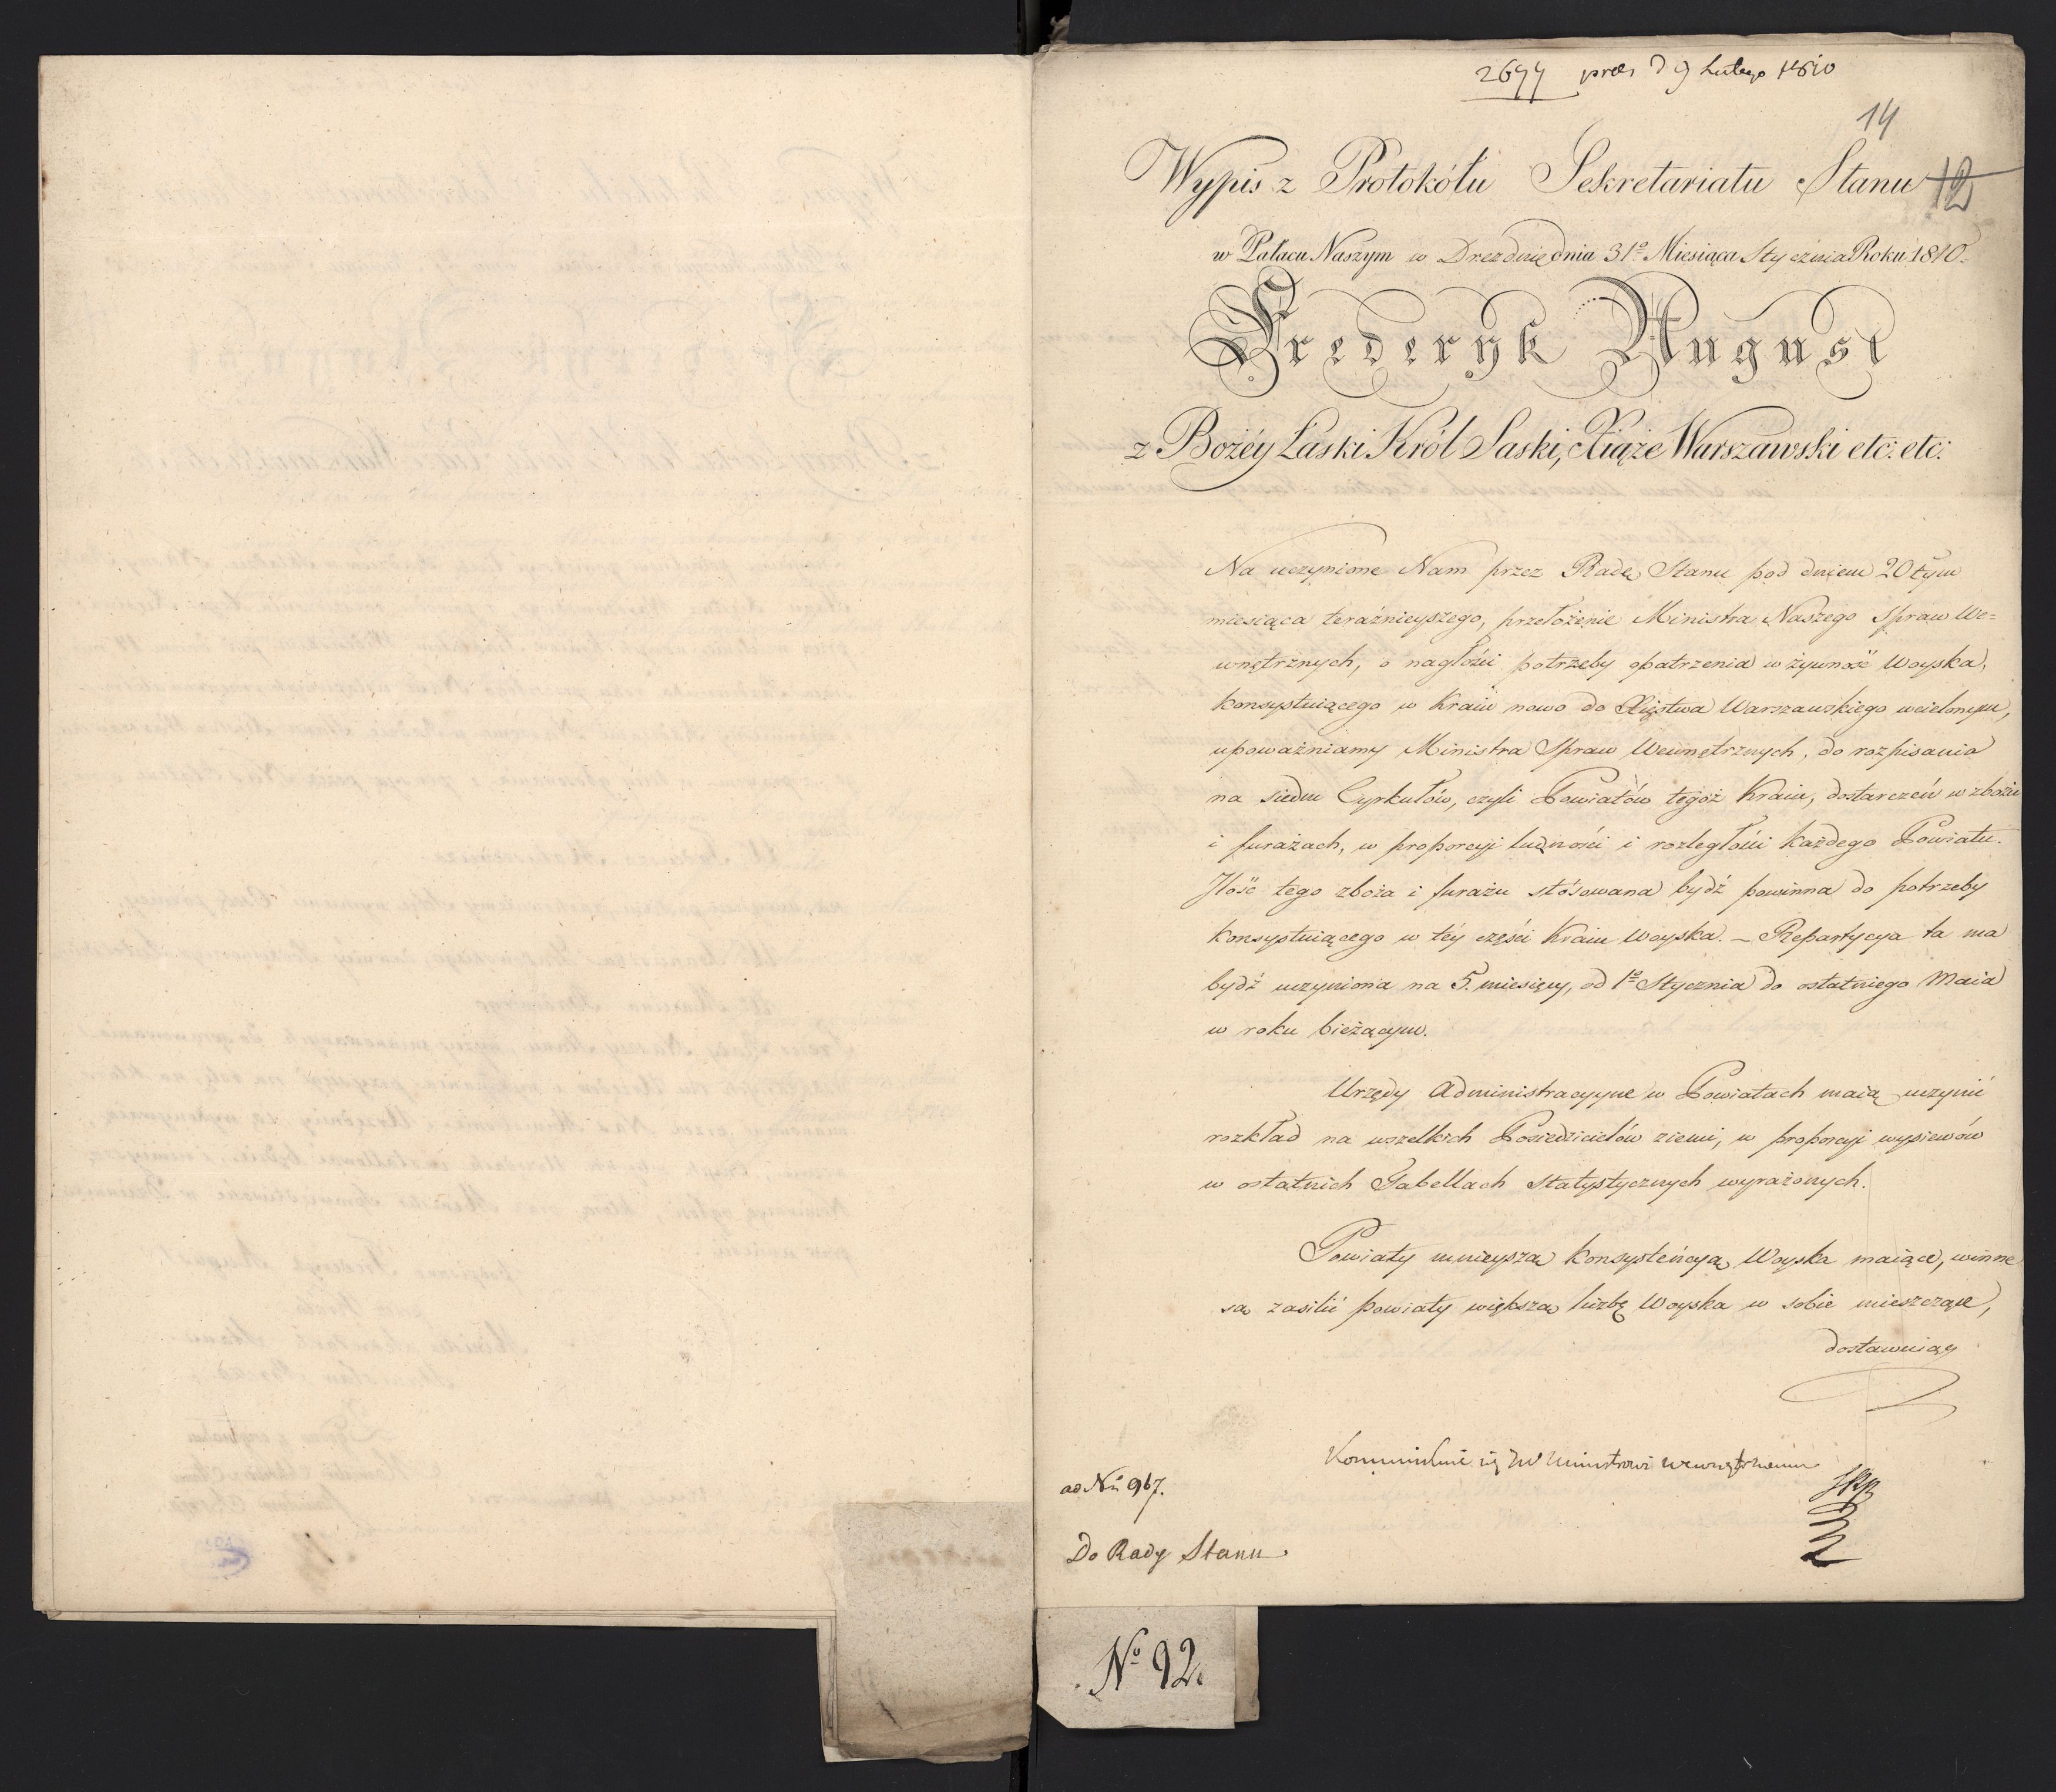 2677 præs d 9 Lutego 1810
14
12
Wypis z Protokółu Sekretariatu Stanu
w Pałacu Naszym w Dreznie dnia 31º Miesiąca Stycznia Roku 1810.
Frederyk August
z Bożéy Łaski Król Saski, Xiąże Warszawski etc: etc:
Na uczynione Nam przez Radę Stanu pod dniem 20tym
miesiąca teraźnieyszego, przełożenie Ministra Naszego Spraw We=
wnętrznych, o nagłości potrzeby opatrzenia w żywność Woyska,
konsystuiącego w Kraiu nowo do Xięstwa Warszawskiego wcielonym,
upoważniamy Ministra Spraw Wewnętrznych, do rozpisania
na siedm Cyrkułów, czyli Powiatów tegoż Kraiu, dostarczeń w zbożu
i furażach, w proporcyi ludności i rozległości każdego Powiatu.
Jlość tego zboża i furażu stósowana bydź powinna do potrzeby
konsystuiącego w téy części Kraiu Woyska. – Repartycya ta ma
bydź uczyniona na 5. miesięcy, od 1º Stycznia do ostatniego Maia
w roku bieżącym.
Urzędy Administracyyne w Powiatach maią uczynić
rozkład na wszelkich Posiedzicielów ziemi, w proporcyi wysiewów
w ostatnich Tabellach Statystycznych wyrażonych.
Powiaty mnieyszą konsystencyą Woyska maiące, winne
są zasilić powiaty większą liczbę Woyska w sobie mieszczące,
dostawuiąc
Kommunikuie się JW Ministrowi wewnętrznemu
ad Nr 967.
Do Rady Stanu
Nº 92.